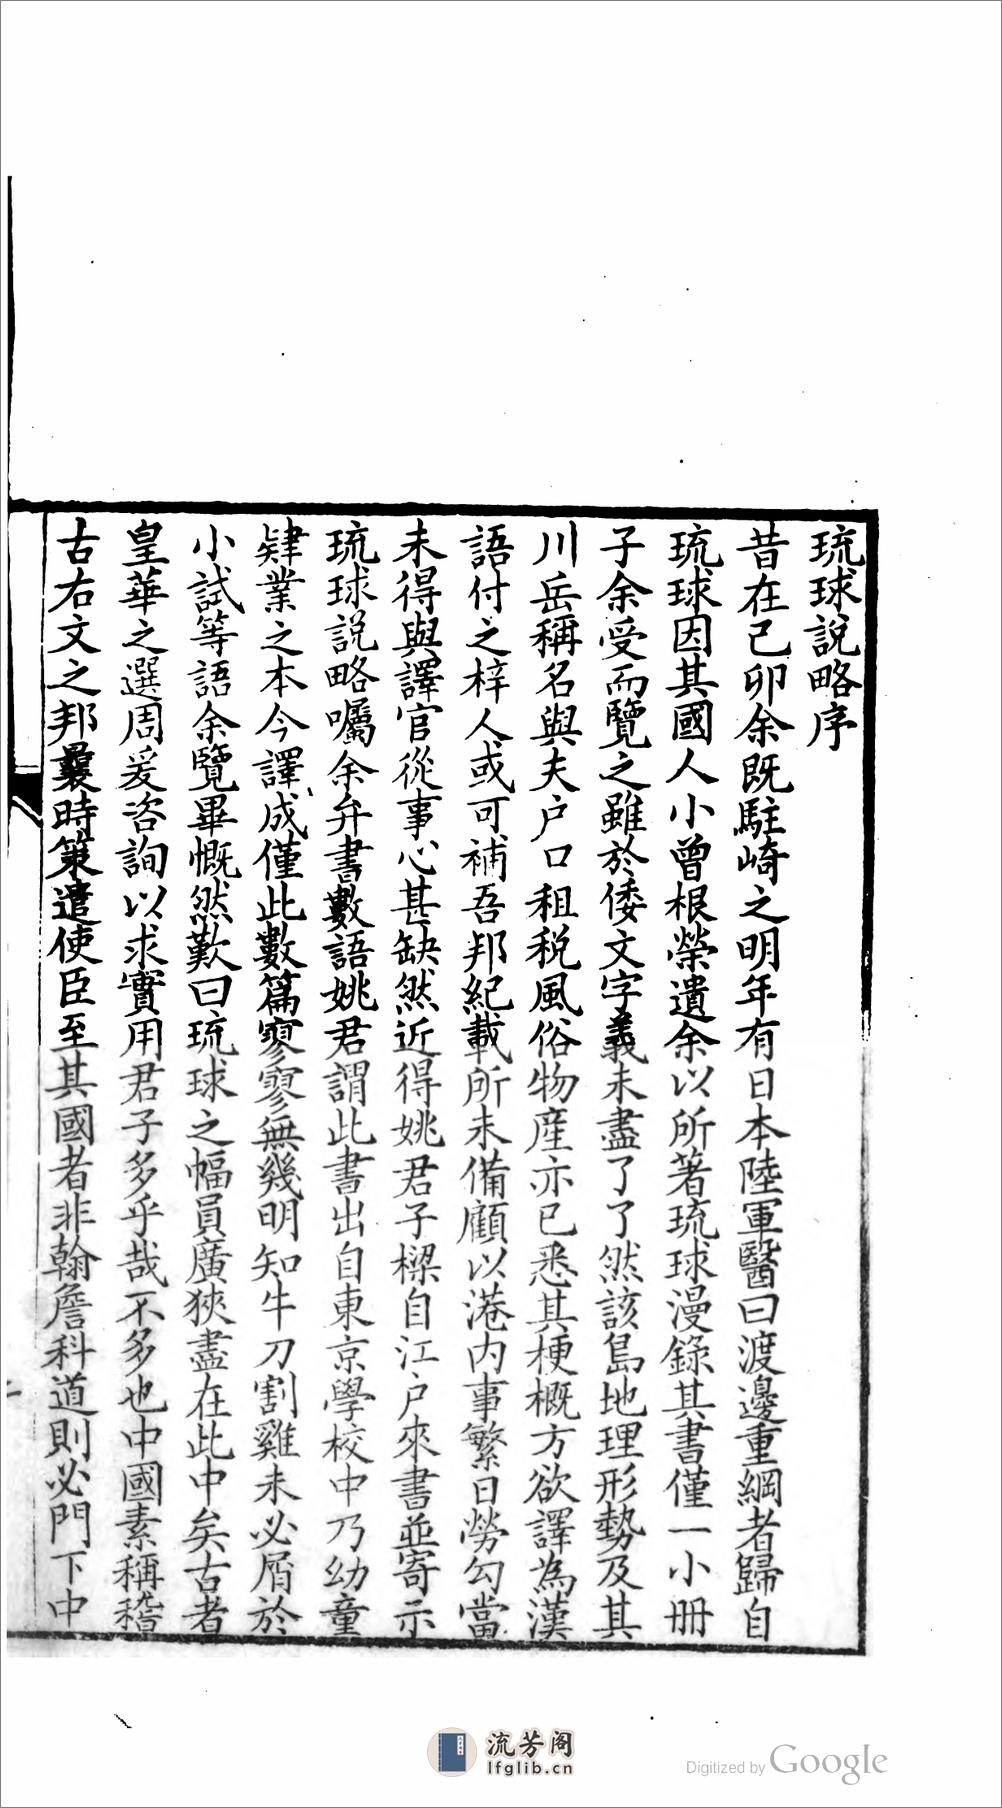 琉球說略序
昔在己卯余既駐崎之明年有日本陸軍醫曰渡邊重綱者歸自
琉球因其國人小曾根榮遺余以所著琉球漫錄其書僅一小冊
子余受而覽之雖於倭文字義未盡了了然該島地理形勢及其
川岳稱名與夫户口租税風俗物産亦已悉其梗概方欲譯為漢
語付之梓人或可補吾邦紀載所未備顧以港内事繁日勞勾當
未得與譯官從事心甚缺然近得姚君子樑自江户來書並寄示
琉球說略囑余弁書數語姚君謂此書出自東京學校中乃幼童
肄業之本今譯成僅此數篇寥寥無幾明知牛刀割雞未必屑於
小試等語余覽畢慨然歎曰琉球之幅員廣狹盡在此中矣古者
皇華之選周爰咨詢以求實用君子多乎哉不多也中國素稱稽
古右文之邦曩時策遣使臣至其國者非翰詹科道則必門下中
流芳阁
lfglib.cn
Digitized by Google